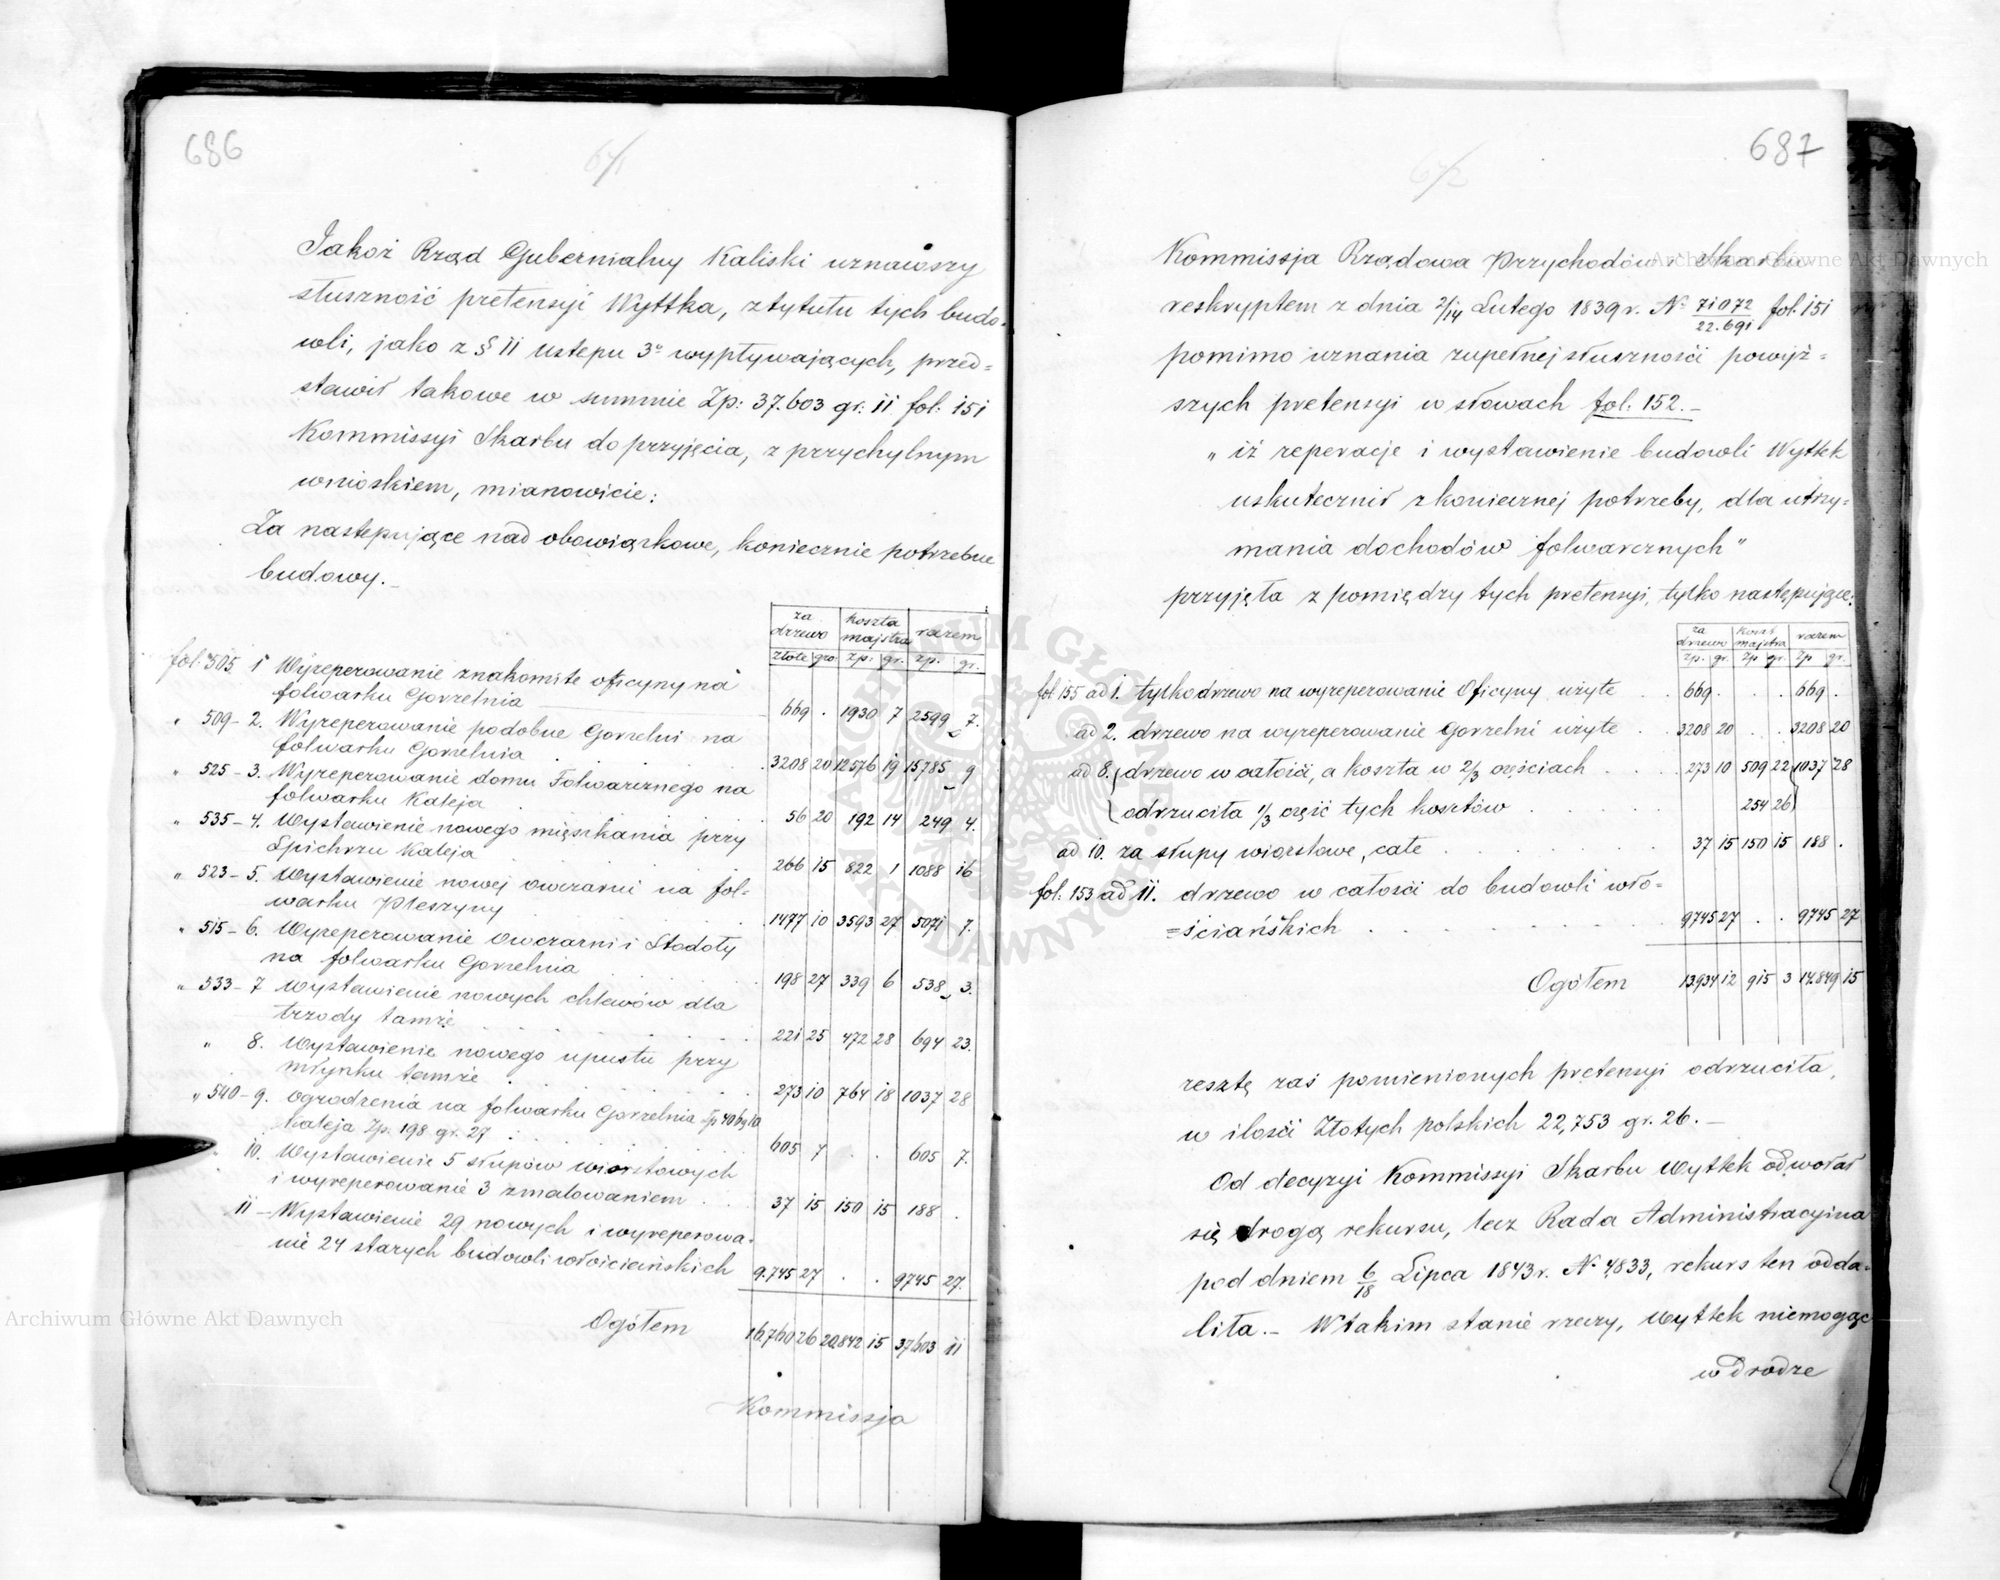 686
671
Jakoż Rząd Gubernialny Kaliski uznawszy
słuszność pretensyi Wyttka, z tytułu tych budo-
wli, jako z § 11 ustępu 3º wypływających, przed=
stawił takowe w summie Zp: 37.603 gr: 11 fol: 151
Kommissyi Skarbu do przyjęcia, z przychylnym
wnioskiem, mianowicie:
Za następujące nad obowiązkowe, koniecznie potrzebne
budowy.-
za drzewo | koszta majstra | razem
złote | gro: | zp: | gr. | zp. | gr.
fol: 505. 1 Wyreperowanie znakomite oficyny na
folwarku Gorzelnia 669 . 1930 7 2599 7.
" 509- 2. Wyreperowanie podobne Gorzelni na
folwarku Gorzelnia . 3208 20 12576 19 15785 9
" 525- 3. Wyreperowanie domu Folwarcznego na
folwarku Kaleja . 56 20 192 14 249 4.
" 535- 4. Wystawienie nowego mięszkania przy
Spichrzu Kaleja . 266 15 822 1 1088 16
" 523- 5. Wystawienie nowej owczarni na fol=
warku Pleszyny . 1477 10 3593 27 5071 7.
" 515- 6. Wyreperowanie Owczarni i Stodoły
na folwarku Gorzelnia . 198 27 339 6 538 3.
" 533- 7 Wystawienie nowych chlewów dla
trzody tamże . 221 25 472 28 694 23.
" 8. Wystawienie nowego upustu przy
młynku tamże . 273 10 764 18 1037 28
" 540- 9. Ogrodzenia na folwarku Gorzelnia Zp 406 g 10
Kaleja Zp. 198 gr. 27 . 605 7 . . 605 7.
" 10. Wystawienie 5 słupów wiorstowych
i wyreperowanie 3 z malowaniem . 37 15 150 15 188 .
11- Wystawienie 29 nowych i wyreperowa-
nie 24 starych budowli włościańskich 9.745 27 . . 9745 27.
Ogółem 16,760 26 20,842 15 37603 11
Kommissja
687
672
Kommissja Rządowa Przychodów i Skarbu
reskryptem z dnia 2/14 Lutego 1839 r. Nº 71072/22.691 fol: 151
pomimo uznania zupełnej słuszności powyż=
szych pretensyi w słowach fol: 152.-
" iż reperacje i wystawienie budowli Wyttek
uskutecznił z koniecznej potrzeby, dla utrzy=
mania dochodów folwarcznych"
przyjęła z pomiędzy tych pretensyi, tylko następujące:
za drzewo | koszt majstra | razem
zp. | gr. | zp | gr. | zp | gr.
fol 155 ad 1. tylko drzewo na wyreperowanie Oficyny użyte . . 669 . . . 669 .
ad 2. drzewo na wyreperowanie Gorzelni użyte . . 3208 20 . . 3208 20
ad 8. { drzewo w całości, a koszta w 2/3 częściach . . . 273 10 509 22 1037 28
{ odrzuciła 1/3 część tych kosztów . . . . 254 26 }
ad 10. za słupy wiorstowe, całe . . . . . 37 15 150 15 188 .
fol: 153 ad 11. drzewo w całości do budowli wło=
=ściańskich . . . . . . 9745 27 . . 9745 27
Ogółem 13.934 12 915 3 14.849 15
resztę zaś pomienionych pretensyi odrzuciła,
w ilości Złotych polskich 22,753 gr. 26.-
Od decyzyi Kommissyi Skarbu Wyttek odwołał
się drogą rekursu, lecz Rada Administracyjna
pod dniem 6/18 Lipca 1843 r. Nº 4833, rekurs ten odda=
liła.- W takim stanie rzeczy, Wyttek niemogąc
w drodze
ARCHIWUM GŁÓWNE AKT DAWNYCH
Archiwum Główne Akt Dawnych
Archiwum Główne Akt Dawnych